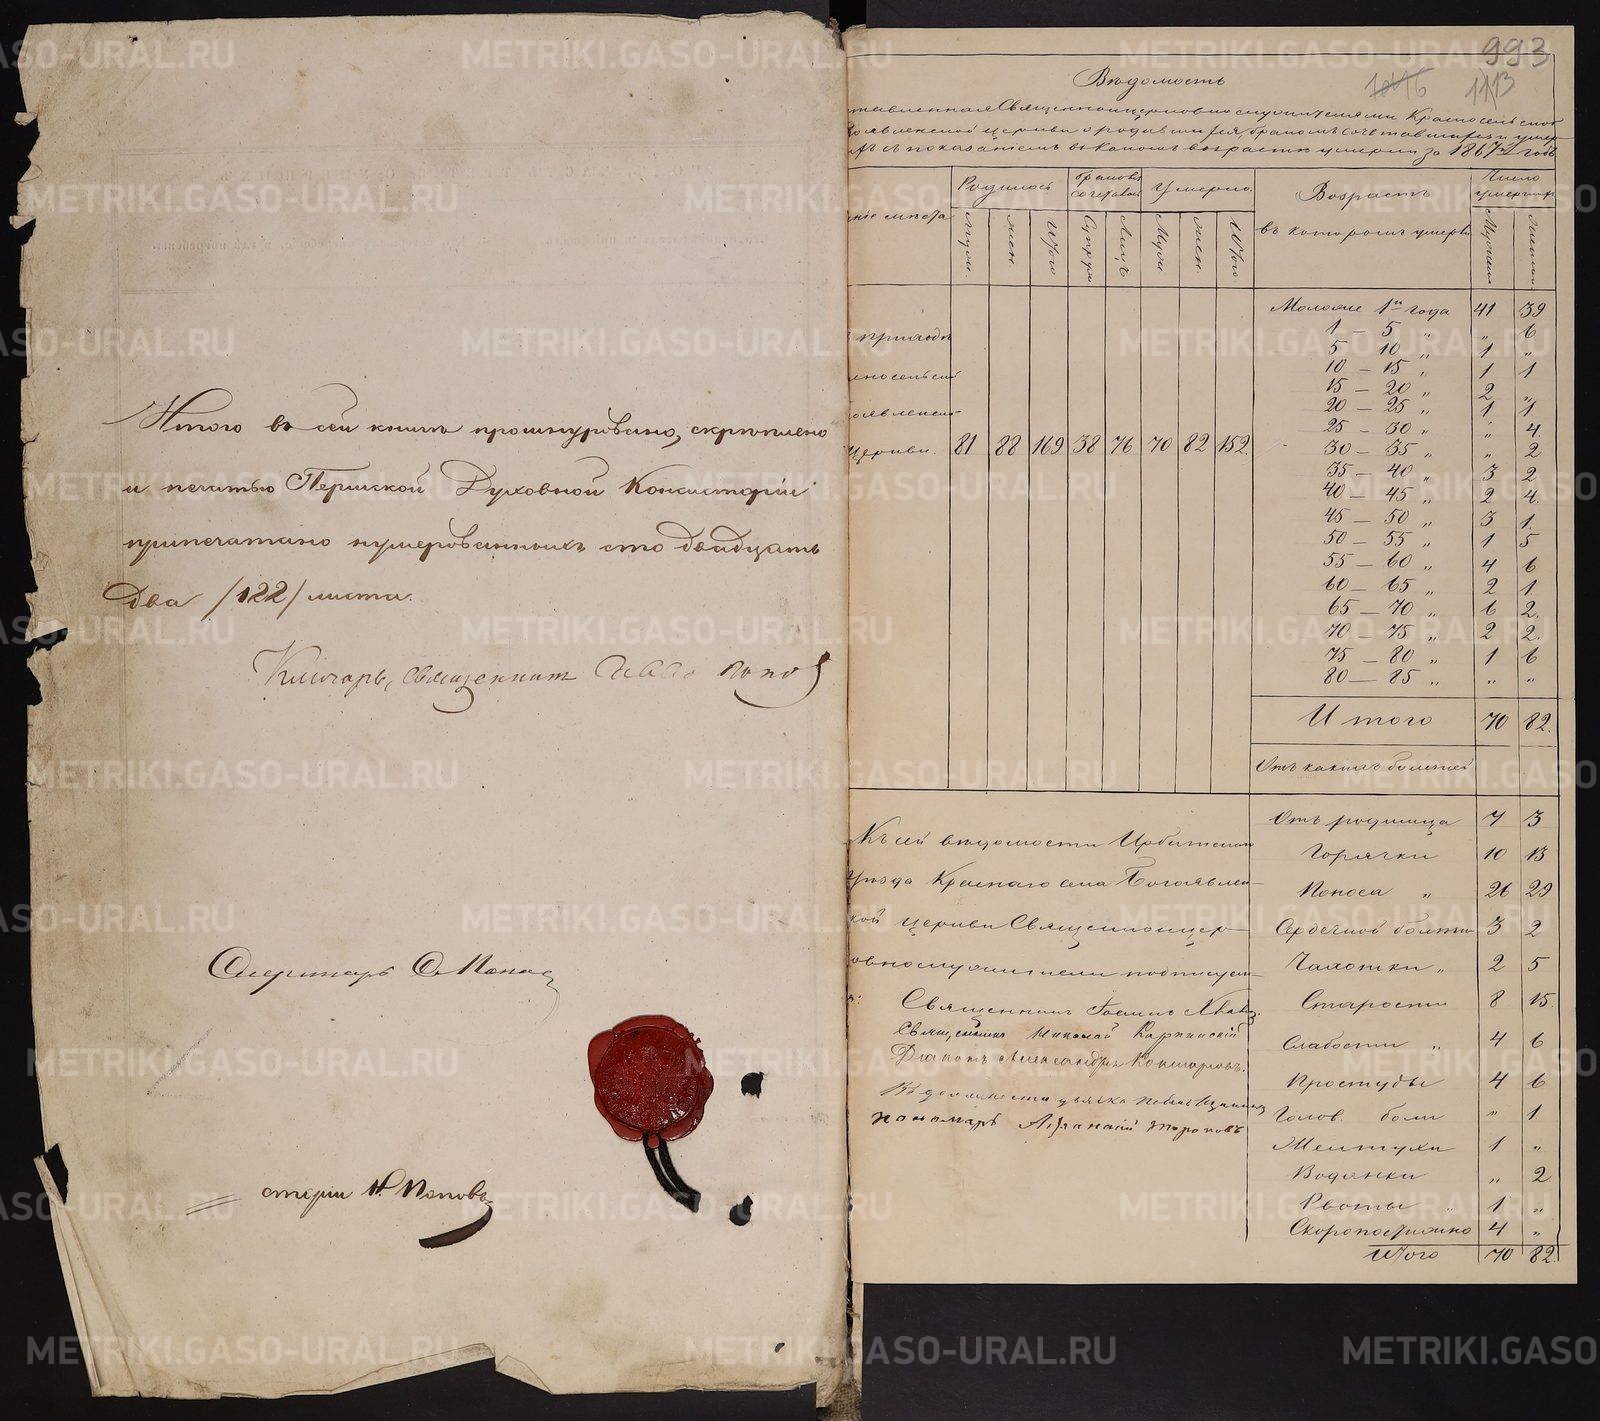 Итого въ сей книгѣ прошнуровано, скрѣплено
и печатью Пермской Духовной Консисторіи
припечатано нумерованныхъ сто двадцать
два /122/ листа.
Ключарь, священникъ Попов
Секретарь Попов
сторіи Н. Поповъ
993
1046 1113
Вѣдомость
ставленная Священноцерковнослужителями Красносельской
Богоявленской церкви о родившихся, бракомъ сочетавшихся и умер-
съ показаніемъ въ какомъ возрастѣ умерли за 1867й годъ
Родилось
Браковъ сочетавш.
Умерло
Возрастъ
въ которомъ умерли
Число умершихъ
ніе мѣста
Муж.
жен.
Итого
Супруж
Лицъ
Муж
жен.
Итого
Мужчин
Женщин
приходѣ
сносельской
оявленской
Церкви. 81 88 169 38 76 70 82 152.
Моложе 1го года 41 39
1 – 5 „ „ 6
5 10 „ 1 „
10 – 15 „ 1 1
15 – 20 „ 2 „
20 – 25 „ 1 1
25 – 30 „ „ 4.
30 – 35 „ „ 2
35 – 40 „ 3 2
40 – 45 „ 2 4.
45 – 50 „ 3 1.
50 – 55 „ 1 5
55 – 60 „ 4 6
60 – 65 „ 2 1
65 – 70 „ 6 2.
70 – 75 „ 2 2.
75 – 80 „ 1 6
80 – 85 „ „ „
Итого 70 82.
Отъ какихъ болѣзней
Отъ родимца 7 3
Горячки 10 13
Поноса „ 26 29
Сердечной болѣзни 3 2
Чахотки „ 2 5
Старости 8 15.
Слабости „ 4 6
Простуды 4 6
Голов. боли „ 1
Желтухи 1 „
Водянки „ 2
Рвоты „ 1 „
Скоропостижно 4 „
Итого 70 82.
Къ сей вѣдомости Ирбитскаго
уѣзда Краснаго села Богоявлен-
ской церкви Священноцер-
ковнослужители подписуем-
Священникъ Іоаннъ
Священникъ Николай Карпинскій
Діаконъ Александръ
Въ должности дьячка
пономарь Афанасій Тороповъ
METRIKI.GASO-URAL.RU